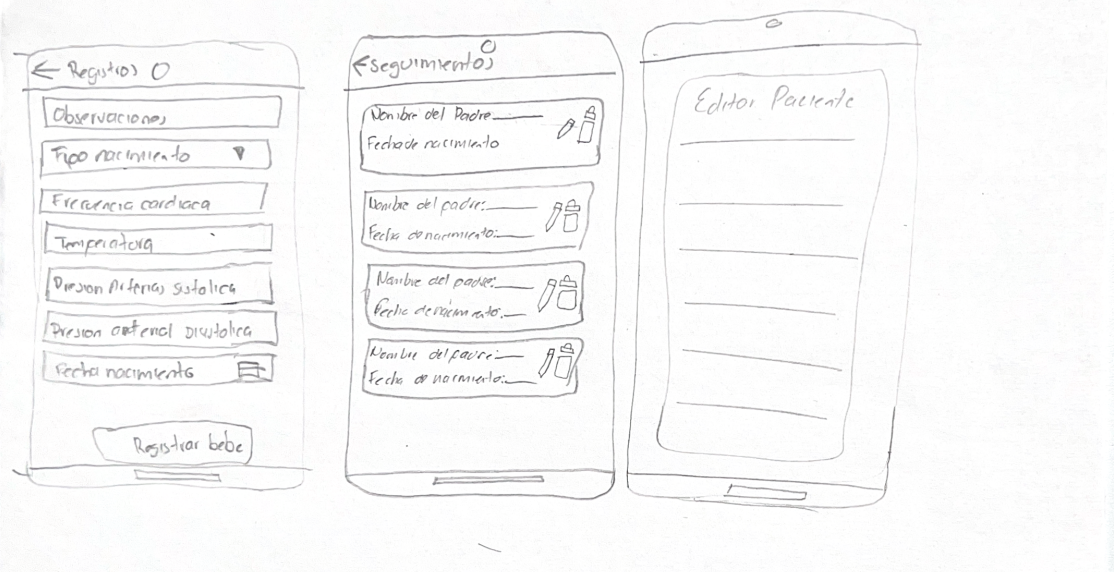 Registros
Observaciones
Tipo nacimiento
Frecuencia cardiaca
Temperatura
Presion Arterias sistolica
Presion arterial Diastolica
Fecha nacimiento
Registrar bebe
seguimientos
Nombre del Padre
Fecha de nacimiento
Nombre del padre:
Fecha de nacimiento:
Nombre del padre:
Fecha de nacimiento:
Nombre del padre:
Fecha de nacimiento:
Editar Paciente